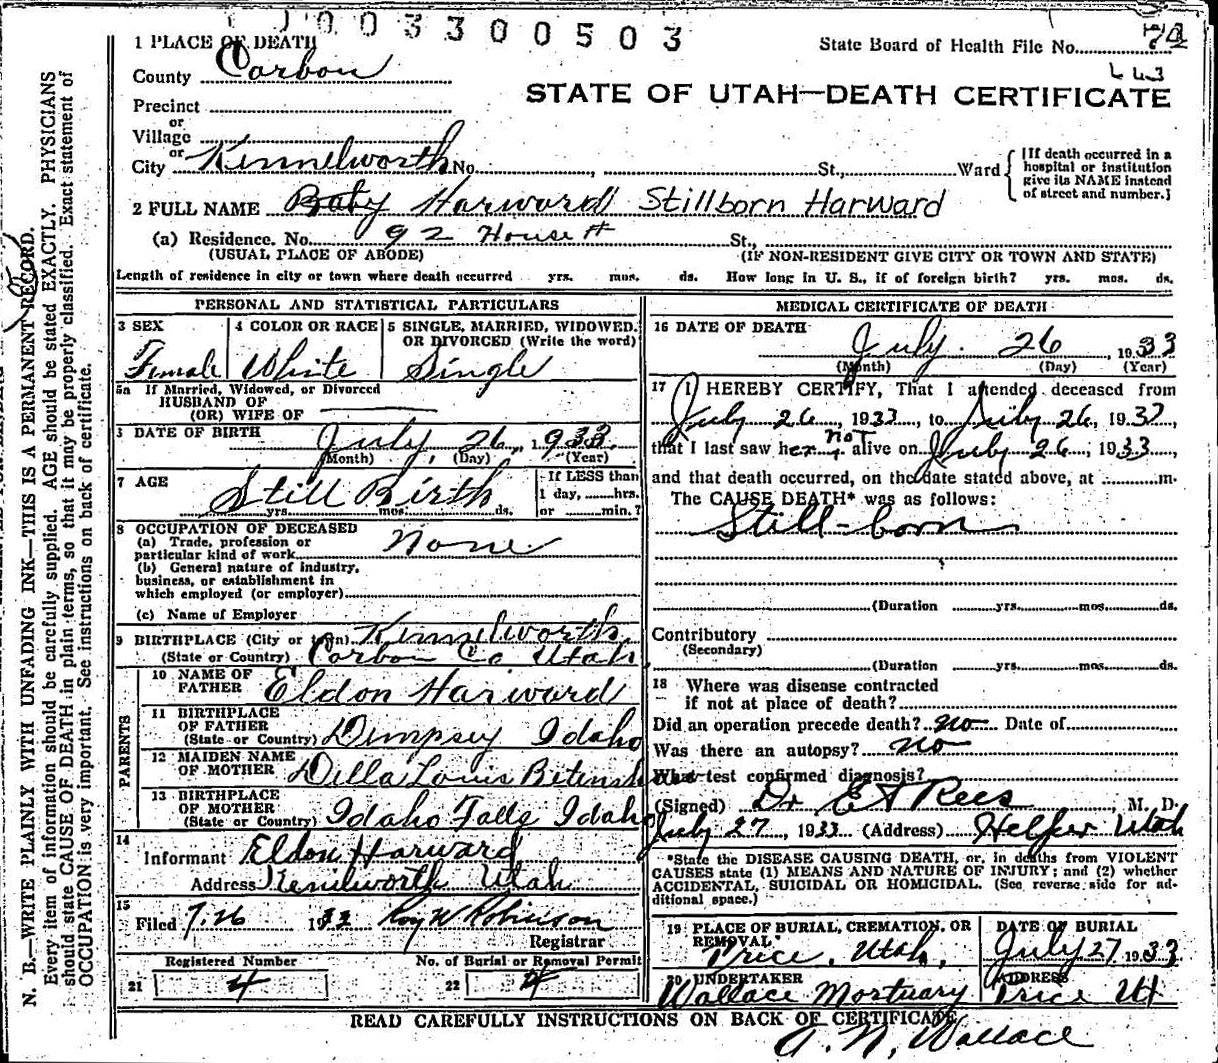 003300503
1 PLACE OF DEATH
State Board of Health File No. 72
County Carbon
443
STATE OF UTAH—DEATH CERTIFICATE
Precinct
or
Village
or
City Kennelworth No. , St., Ward
{If death occurred in a
hospital or institution
give its NAME instead
of street and number.}
2 FULL NAME Baby Harward Stillborn Harward
(a) Residence. No. 92 House # St.,
(USUAL PLACE OF ABODE) (IF NON-RESIDENT GIVE CITY OR TOWN AND STATE)
Length of residence in city or town where death occurred yrs. mos. ds. How long in U. S., if of foreign birth? yrs. mos. ds.
PERSONAL AND STATISTICAL PARTICULARS
3 SEX Female
4 COLOR OR RACE White
5 SINGLE, MARRIED, WIDOWED,
OR DIVORCED (Write the word)
Single
5a If Married, Widowed, or Divorced
HUSBAND OF
(OR) WIFE OF
DATE OF BIRTH July, 26, 1933
(Month) (Day) (Year)
7 AGE Still Birth
yrs. mos. ds.
If LESS than
1 day, hrs.
or min.?
8 OCCUPATION OF DECEASED
(a) Trade, profession or
particular kind of work None
(b) General nature of industry,
business, or establishment in
which employed (or employer)
(c) Name of Employer
9 BIRTHPLACE (City or town) Kennelworth
(State or Country) Carbon Co Utah
PARENTS
10 NAME OF
FATHER Eldon Harward
11 BIRTHPLACE
OF FATHER
(State or Country) Dempsey Idaho
12 MAIDEN NAME
OF MOTHER Della Louis
13 BIRTHPLACE
OF MOTHER
(State or Country) Idaho Falls Idaho
14
Informant Eldon Harward
Address Kenilworth Utah
15
Filed 7.26 1933 Roy W Robinson
Registrar
Registered Number No. of Burial or Removal Permit
21 4 22 4
MEDICAL CERTIFICATE OF DEATH
16 DATE OF DEATH
July. 26, 1933
(Month) (Day) (Year)
17 I HEREBY CERTIFY, That I attended deceased from
July 26, 1933, to July 26, 1933,
that I last saw her not alive on July 26, 1933,
and that death occurred, on the date stated above, at m.
The CAUSE DEATH* was as follows:
Still-born
(Duration yrs. mos. ds.
Contributory
(Secondary)
(Duration yrs. mos. ds.
18 Where was disease contracted
if not at place of death?
Did an operation precede death? no Date of
Was there an autopsy? no
What test confirmed diagnosis?
(Signed) Dr E A Rees, M. D.
July 27, 1933 (Address) Helper Utah
*State the DISEASE CAUSING DEATH, or, in deaths from VIOLENT
CAUSES state (1) MEANS AND NATURE OF INJURY; and (2) whether
ACCIDENTAL, SUICIDAL OR HOMICIDAL. (See reverse side for ad-
ditional space.)
19 PLACE OF BURIAL, CREMATION, OR
REMOVAL
Price, Utah,
DATE OF BURIAL
July 27 1933
20 UNDERTAKER
Wallace Mortuary
ADDRESS
Price Ut
READ CAREFULLY INSTRUCTIONS ON BACK OF CERTIFICATE
A. N. Wallace
N. B.—WRITE PLAINLY WITH UNFADING INK—THIS IS A PERMANENT RECORD.
Every item of information should be carefully supplied. AGE should be stated EXACTLY. PHYSICIANS
should state CAUSE OF DEATH in plain terms, so that it may be properly classified. Exact statement of
OCCUPATION is very important. See instructions on back of certificate.